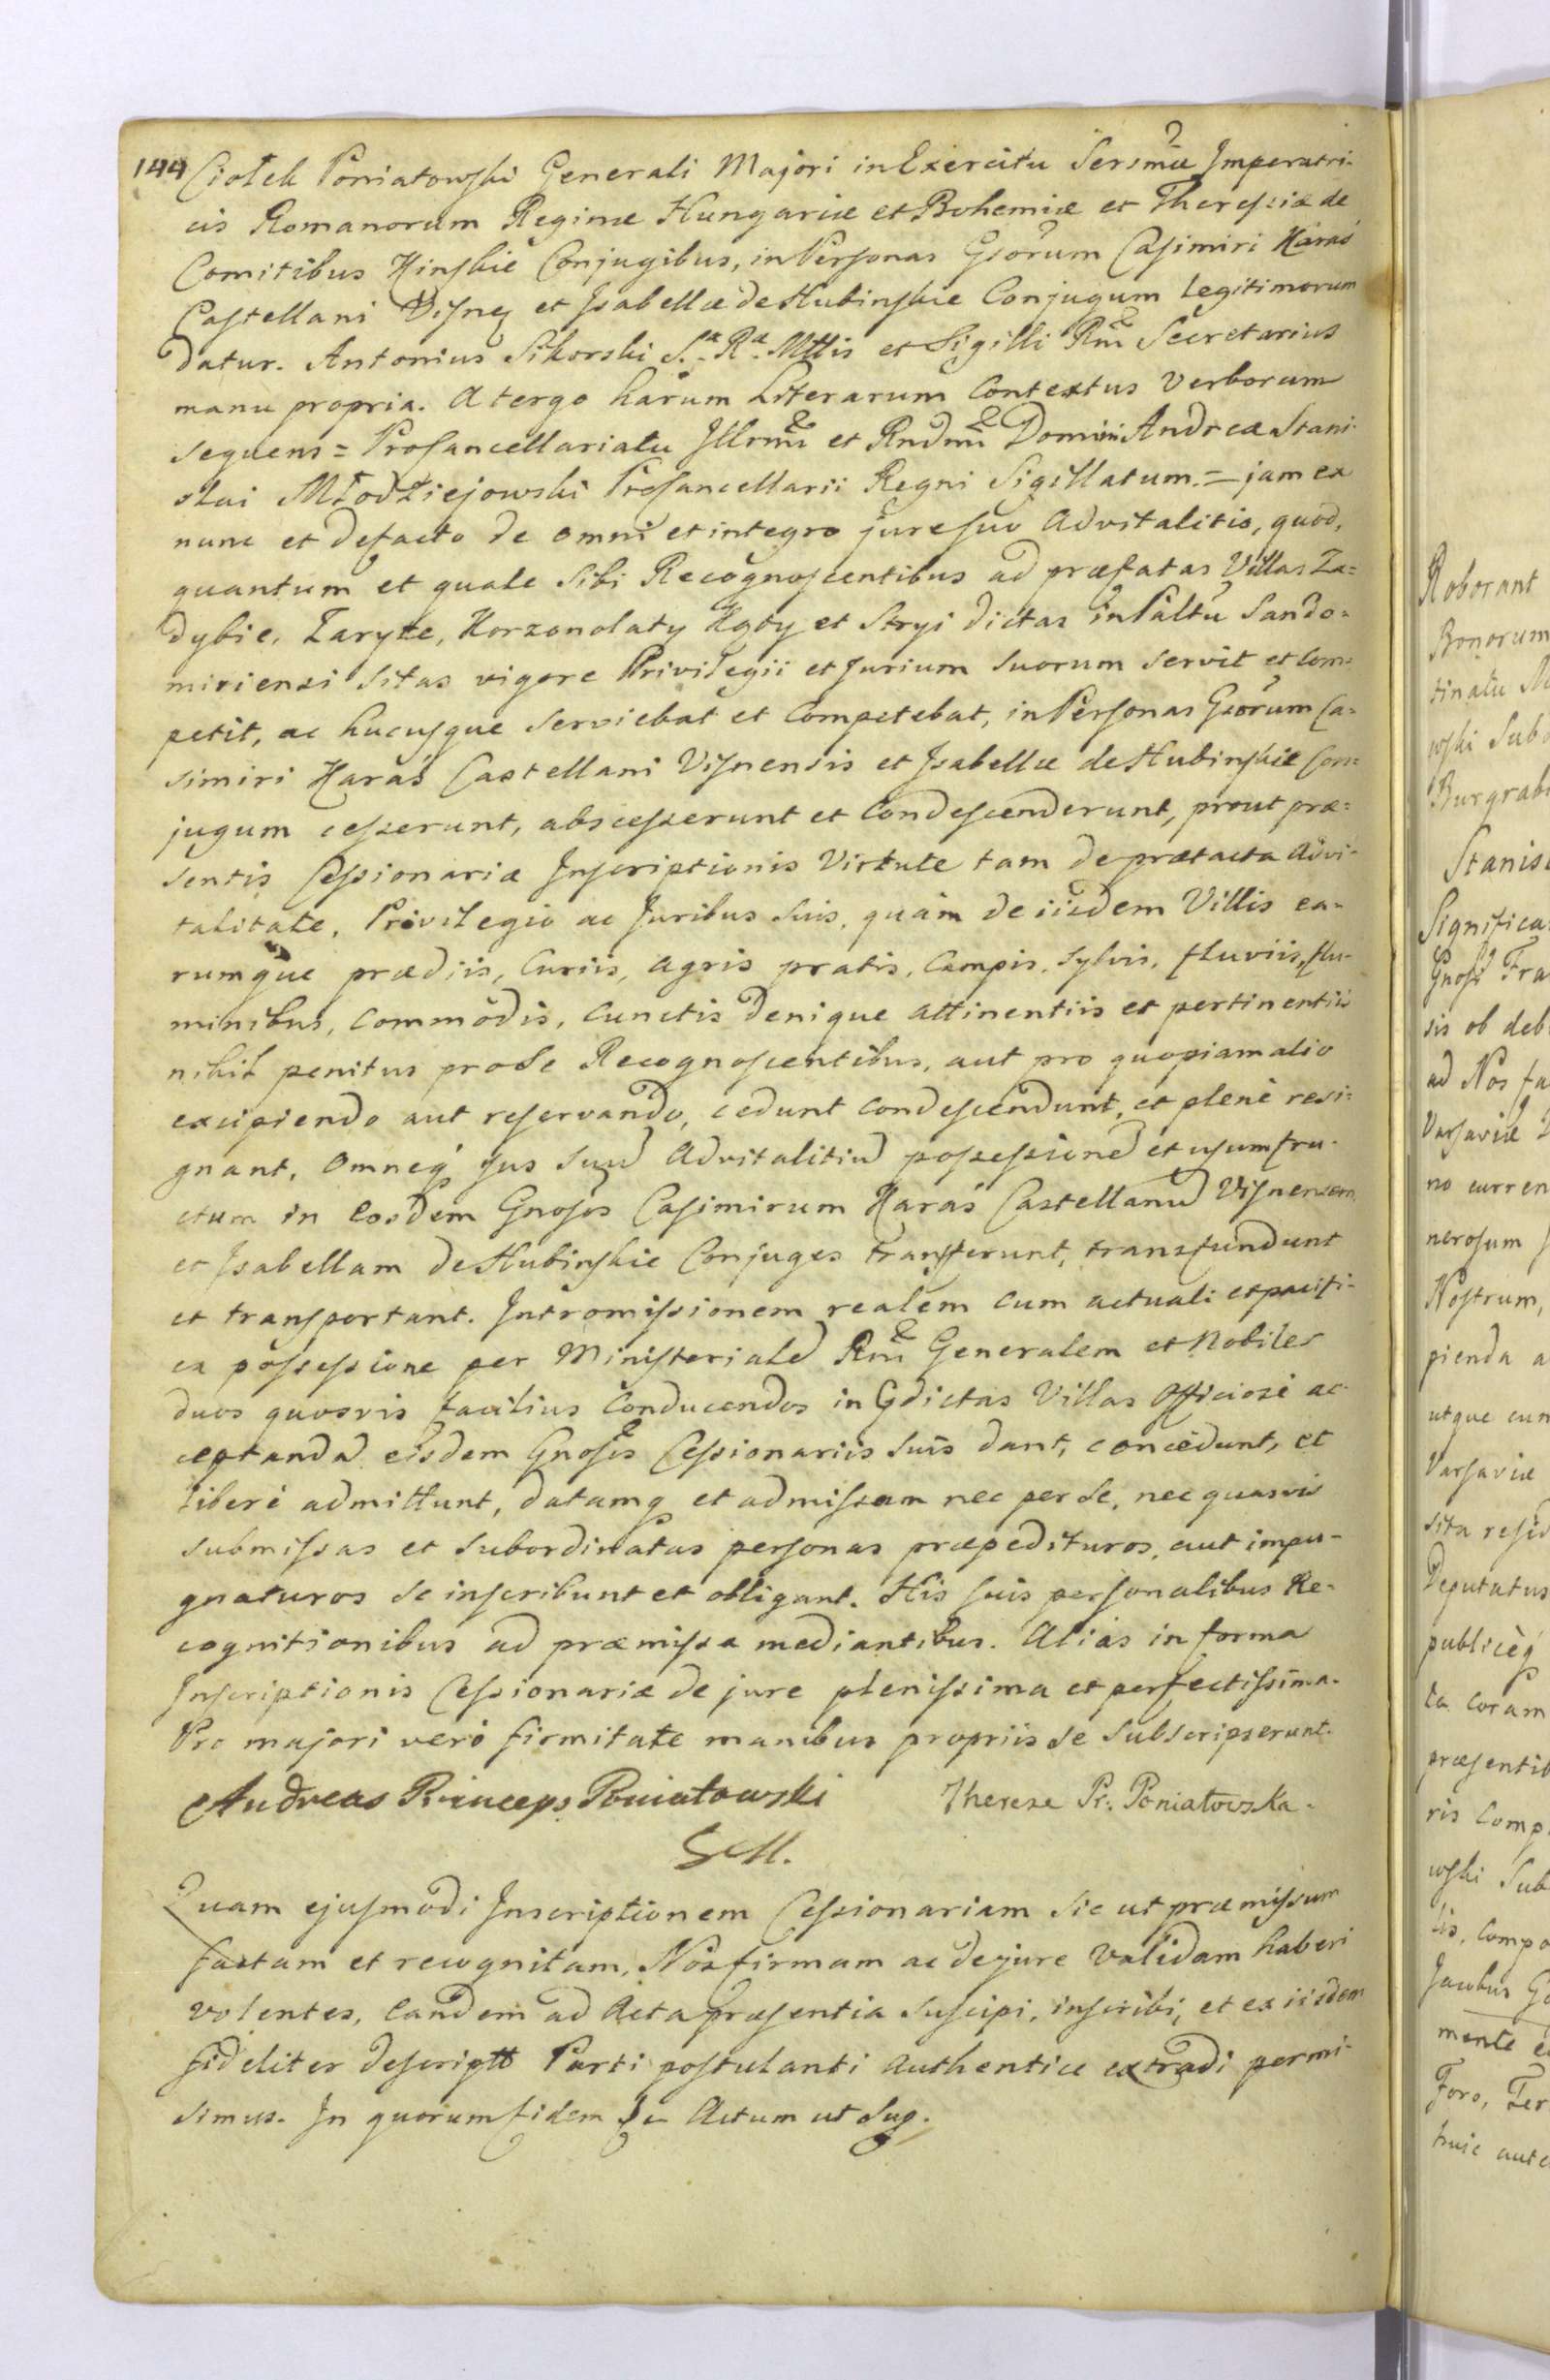 144
Ciołek Poniatowski Generali Majori in Exercitu Sersmæ Imperatri-
cis Romanorum Reginæ Hungariæ et Bohemiæ et Theresiæ de
Comitibus Kinskie Conjugibus, in Personas Gsorum Casimiri Karaś
Castellani Visneṅ et Isabellæ de Hubinskie Conjugum legitimorum
datur. Antonius Sikorski S.ᵃ R.ᵃ Mttis et Sigilli Rnī Secretarius
manu propria. A tergo harum Literarum Contextus Verborum
sequens = Procancellariatu Illrmi et Rndmi Domini Andreæ Stani-
slai Młodziejowski Procancellarii Regni Sigillatum. = jam ex
nunc et defacto de omni et integro jure suo Advitalitio, quod,
quantum et quale Sibi Recognoscentibus ad præfatas Villas Za=
dybie, Zaryte, Korzonolaty Kąty et Stryi dictas in Pałtu Sando=
miriensi sitas vigore Privilegii et Jurium Suorum Servit et Com=
petit, ac hucusque Serviebat et Competebat, in Personas Gsorum Ca=
simiri Karaś Castellani Visnensis et Isabellæ de Hubinskie Con=
jugum cesserunt, abscesserunt et Condescenderunt, prout præ=
sentis Cessionariæ Inscriptionis Virtute tam de prætacta Advi-
talitate, Privilegio ac Juribus Suis, quàm de iisdem Villis ea-
rumque prædiis, Curiis, Agris pratis, Campis, Sylvis, fluviis, flu-
minibus, Commodis, Cunctis denique attinentiis et pertinentiis
nihil penitus pro Se Recognoscentibus, aut pro quopiam alio
excipiendo aut reservando, cedunt condescendunt, et plenè resi=
gnant, Omneq jus suu Advitalitiu possessione et usumfru-
ctum in Eosdem Gnosos Casimirum Karaś Castellanu Visnensem
et Isabellam de Hubinskie Conjuges transferunt, transfundunt
et transportant. Intromissionem realem cum actuali et pacifi-
ca possessione per Ministeriale Rnī Generalem et Nobiles
duos quosvis facilius Conducendos in Gdictas Villas Officiosè ac-
ceptanda eisdem Gnosis Cessionariis Suis dant, concedunt, et
liberè admittunt, datamq et admissam nec per Se, nec quasvis
submissas et subordinatas personas præpedituros, aut impu-
gnaturos se inscribunt et obligant. His suis personalibus Re-
cognitionibus ad præmissa mediantibus. Alias in forma
Inscriptionis Cessionariæ de jure plenissima et perfectissima.
Pro majori verò firmitate manibus propriis se Subscripserunt.
Andreas Princeps Poniatowski Therese Pr: Poniatowska.
Quam ejusmodi Inscriptionem Cessionariam Sic ut præmissum
factam et recognitam, Nos firmam ac de jure Validam haberi
volentes, Eandem ad Acta præsentia Suscipi, inscribi, et ex iisdem
fideliter descriptt Parti postulanti Authentice extradi permi-
simus. In quorum fidem &c Actum ut Sup.
Roborant
Bonorum
tinatu
wski Sub
Burgrab
Stanisl
Significa
Gnosi Fra
sis ob deb
ad Nos fa
Varsaviæ
no curren
nerosum
Nostrum,
pienda a
utque cum
Varsaviæ
sita resid
Deputatus
publicèq
ta Coram
præsentib
ris Comp
wski Sub
tis, Compo
Jacobus
mente
Foro, Ter
huic aute